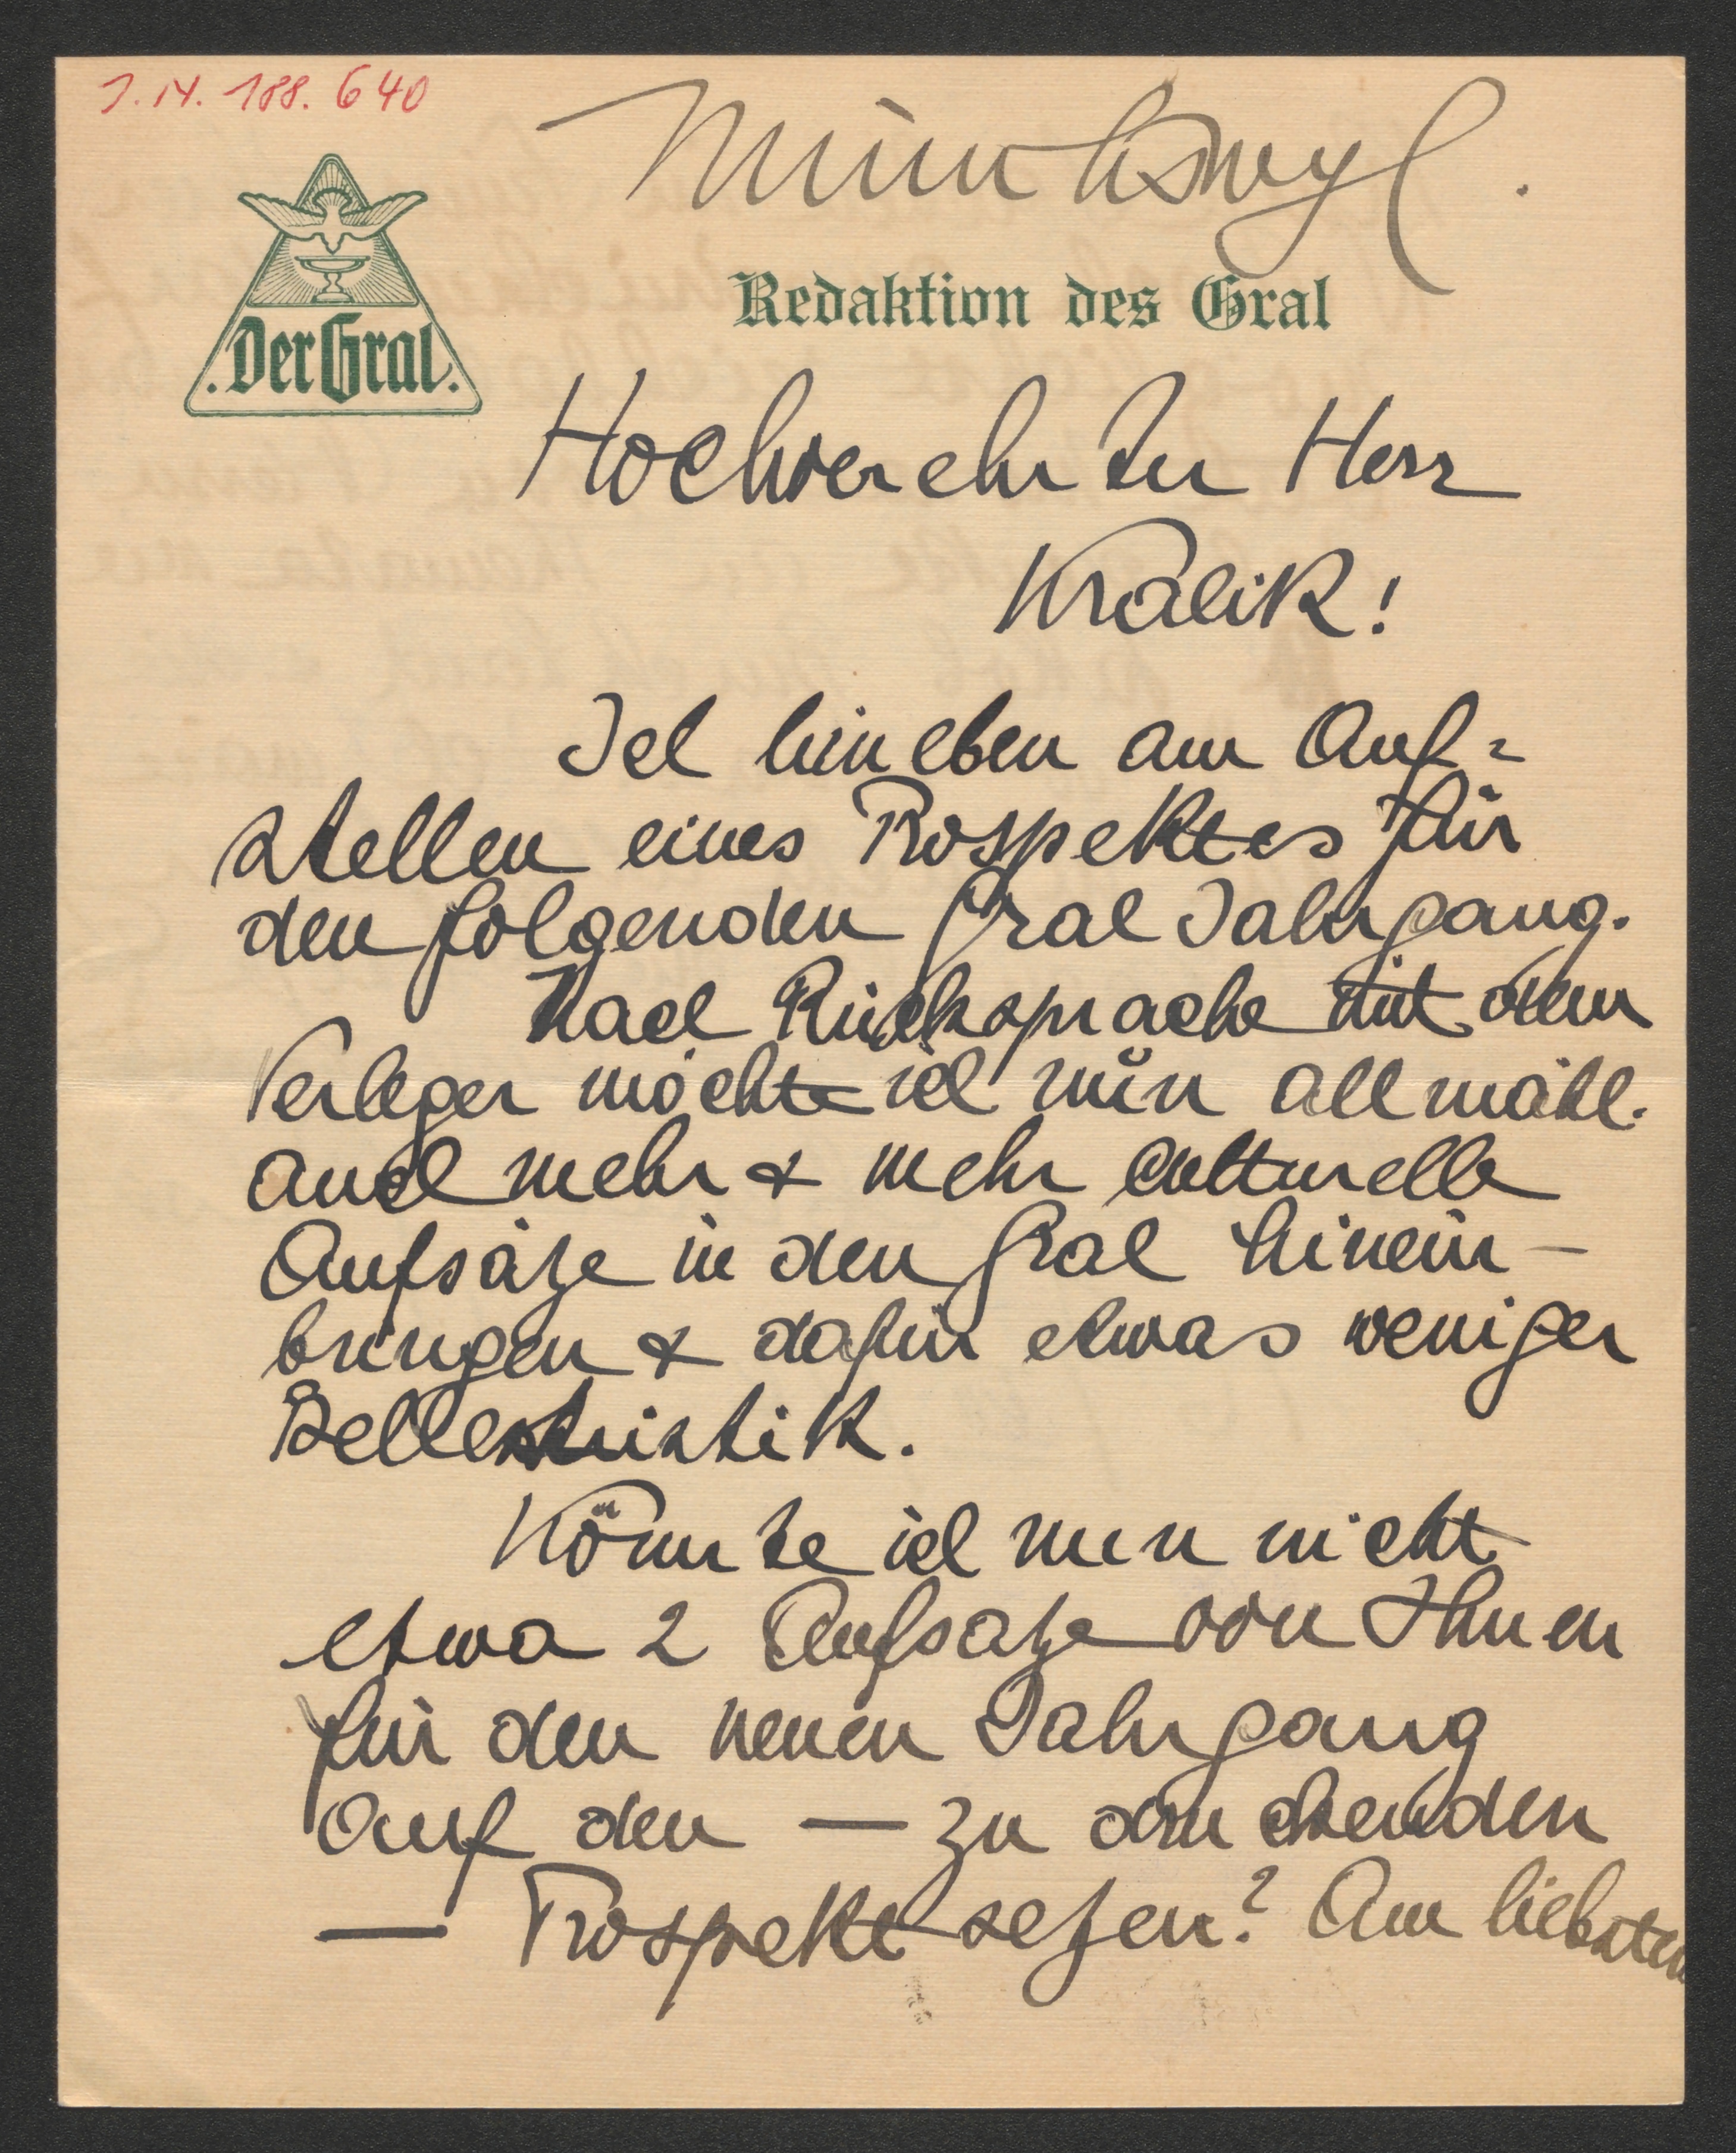 J. N. 188.640
Münchwyl.
Der Gral.
Redaktion des Gral
Hochverehrter Herr
Kralik!
Ich bin eben am Auf=
stellen eines Prospektes für
den folgenden Gral Jahrgang.
Nach Rücksprache mit dem
Verleger möchte ich nün allmähl.
auch mehr & mehr culturelle
Aufsätze in den Gral hinein-
bringen & dafür etwas weniger
Belletristik.
Könnte ich nun nicht
etwa 2 Aufsätze von Ihnen
für den neuen Jahrgang
auf den — zu druckenden
— Prospekt setzen? Am liebsten